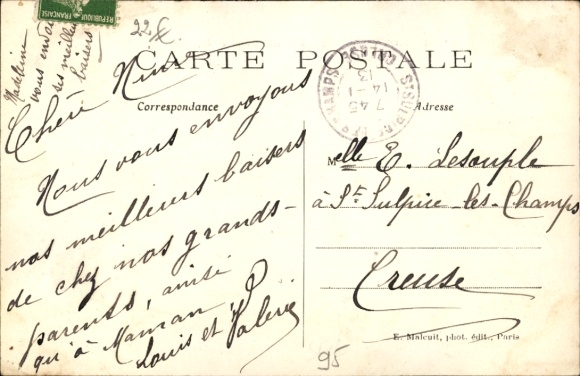 22
RÉPUBLIQUE FRANÇAISE
Madeleine
vous envoie
ses meilleurs
baisers
CARTE POSTALE
Correspondance
Adresse
Chère
Nous vous envoyons
nos meilleurs baisers
de chez nos grands-
parents, ainsi
qu'à Maman
Louis et Valerie
Melle E. Lesouple
à St Sulpice les-Champs
Creuse
E. Malcuit, phot. édit., Paris
95